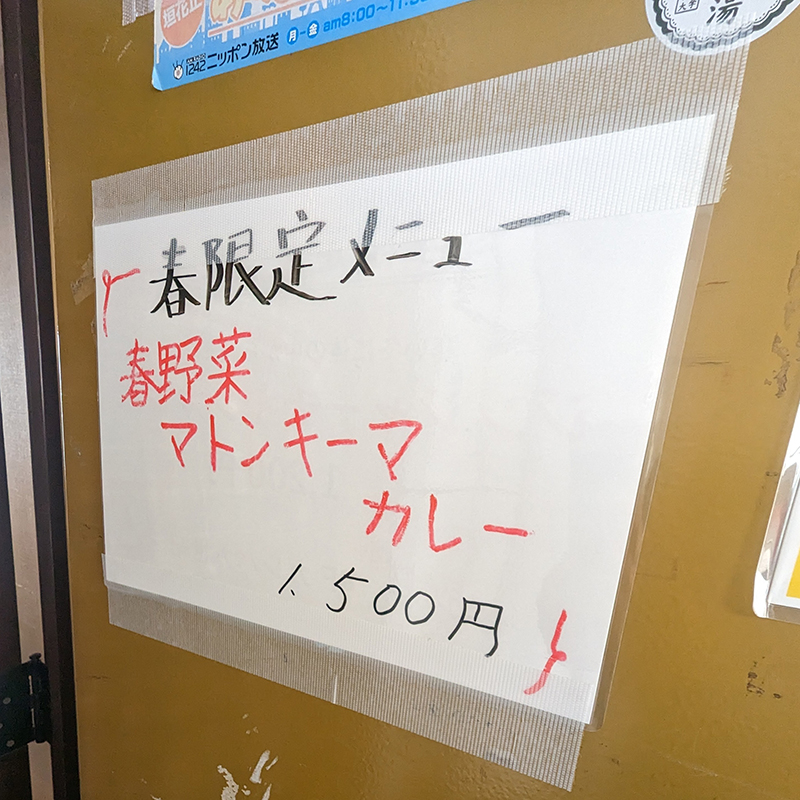 1242 ニッポン放送 月-金 am8:00~11:
湯
春限定メニュー
春野菜
マトンキーマ
カレー
1.500円